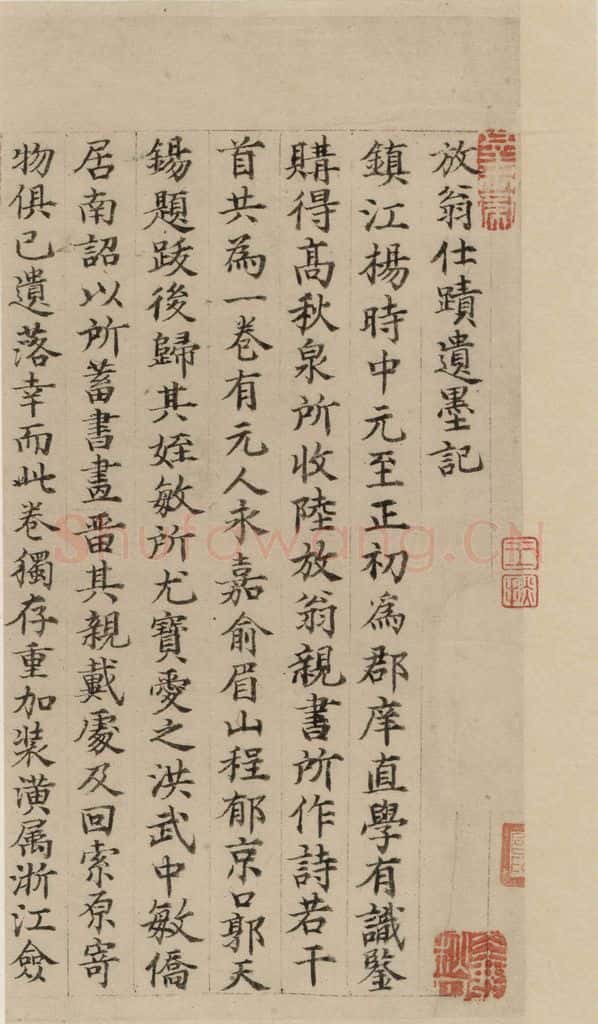 放翁仕蹟遺墨記
鎮江楊時中元至正初爲郡庠直學有識鑒
購得髙秋泉所收陸放翁親書所作詩若干
首共為一卷有元人永嘉俞眉山程郁京口郭天
錫題跋後歸其姪敏所尤寶愛之洪武中敏僑
居南詔以所蓄書畫畱其親戴處及回索原寄
物俱已遺落幸而此卷獨存重加装潢属浙江僉
Shufawang.CN